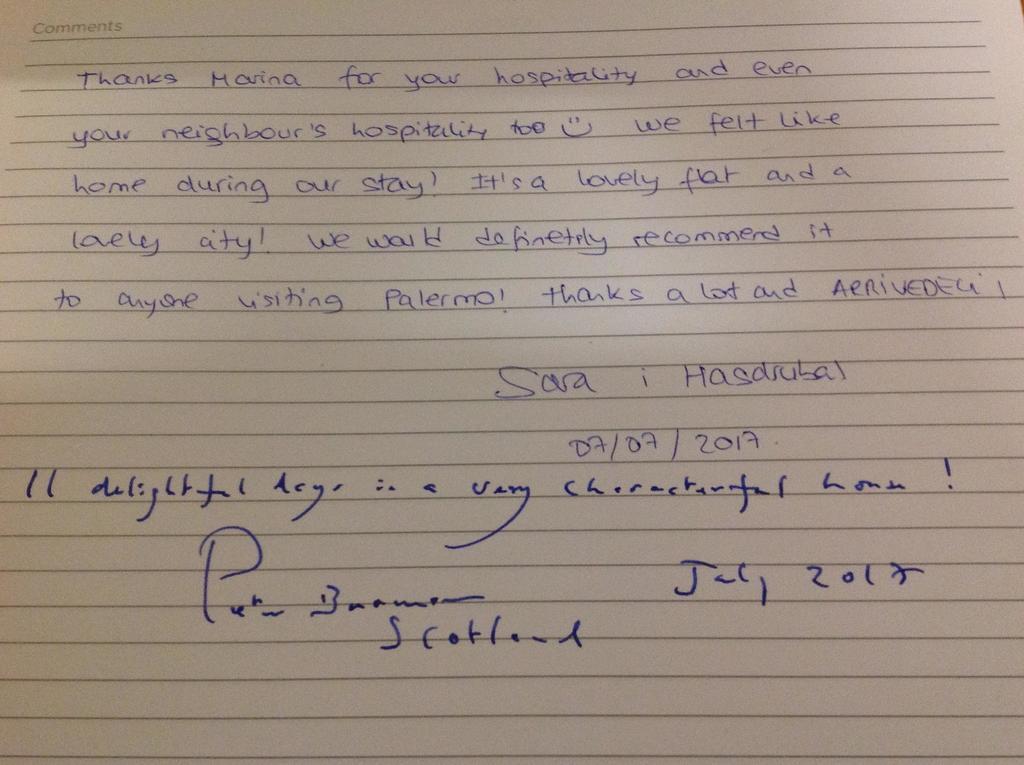 Comments
Thanks Marina for your hospitality and even
your neighbour's hospitality too We felt like
home during our stay! It's a lovely flat and a
lovely city! We would definetely recommend it
to anyone visiting Palermo! thanks a lot and ARRIVEDECI!
Sara i Hasdrubal
07/07/2017.
11 delightful days in a very characterful home!
Peter
July 2017
Scotland